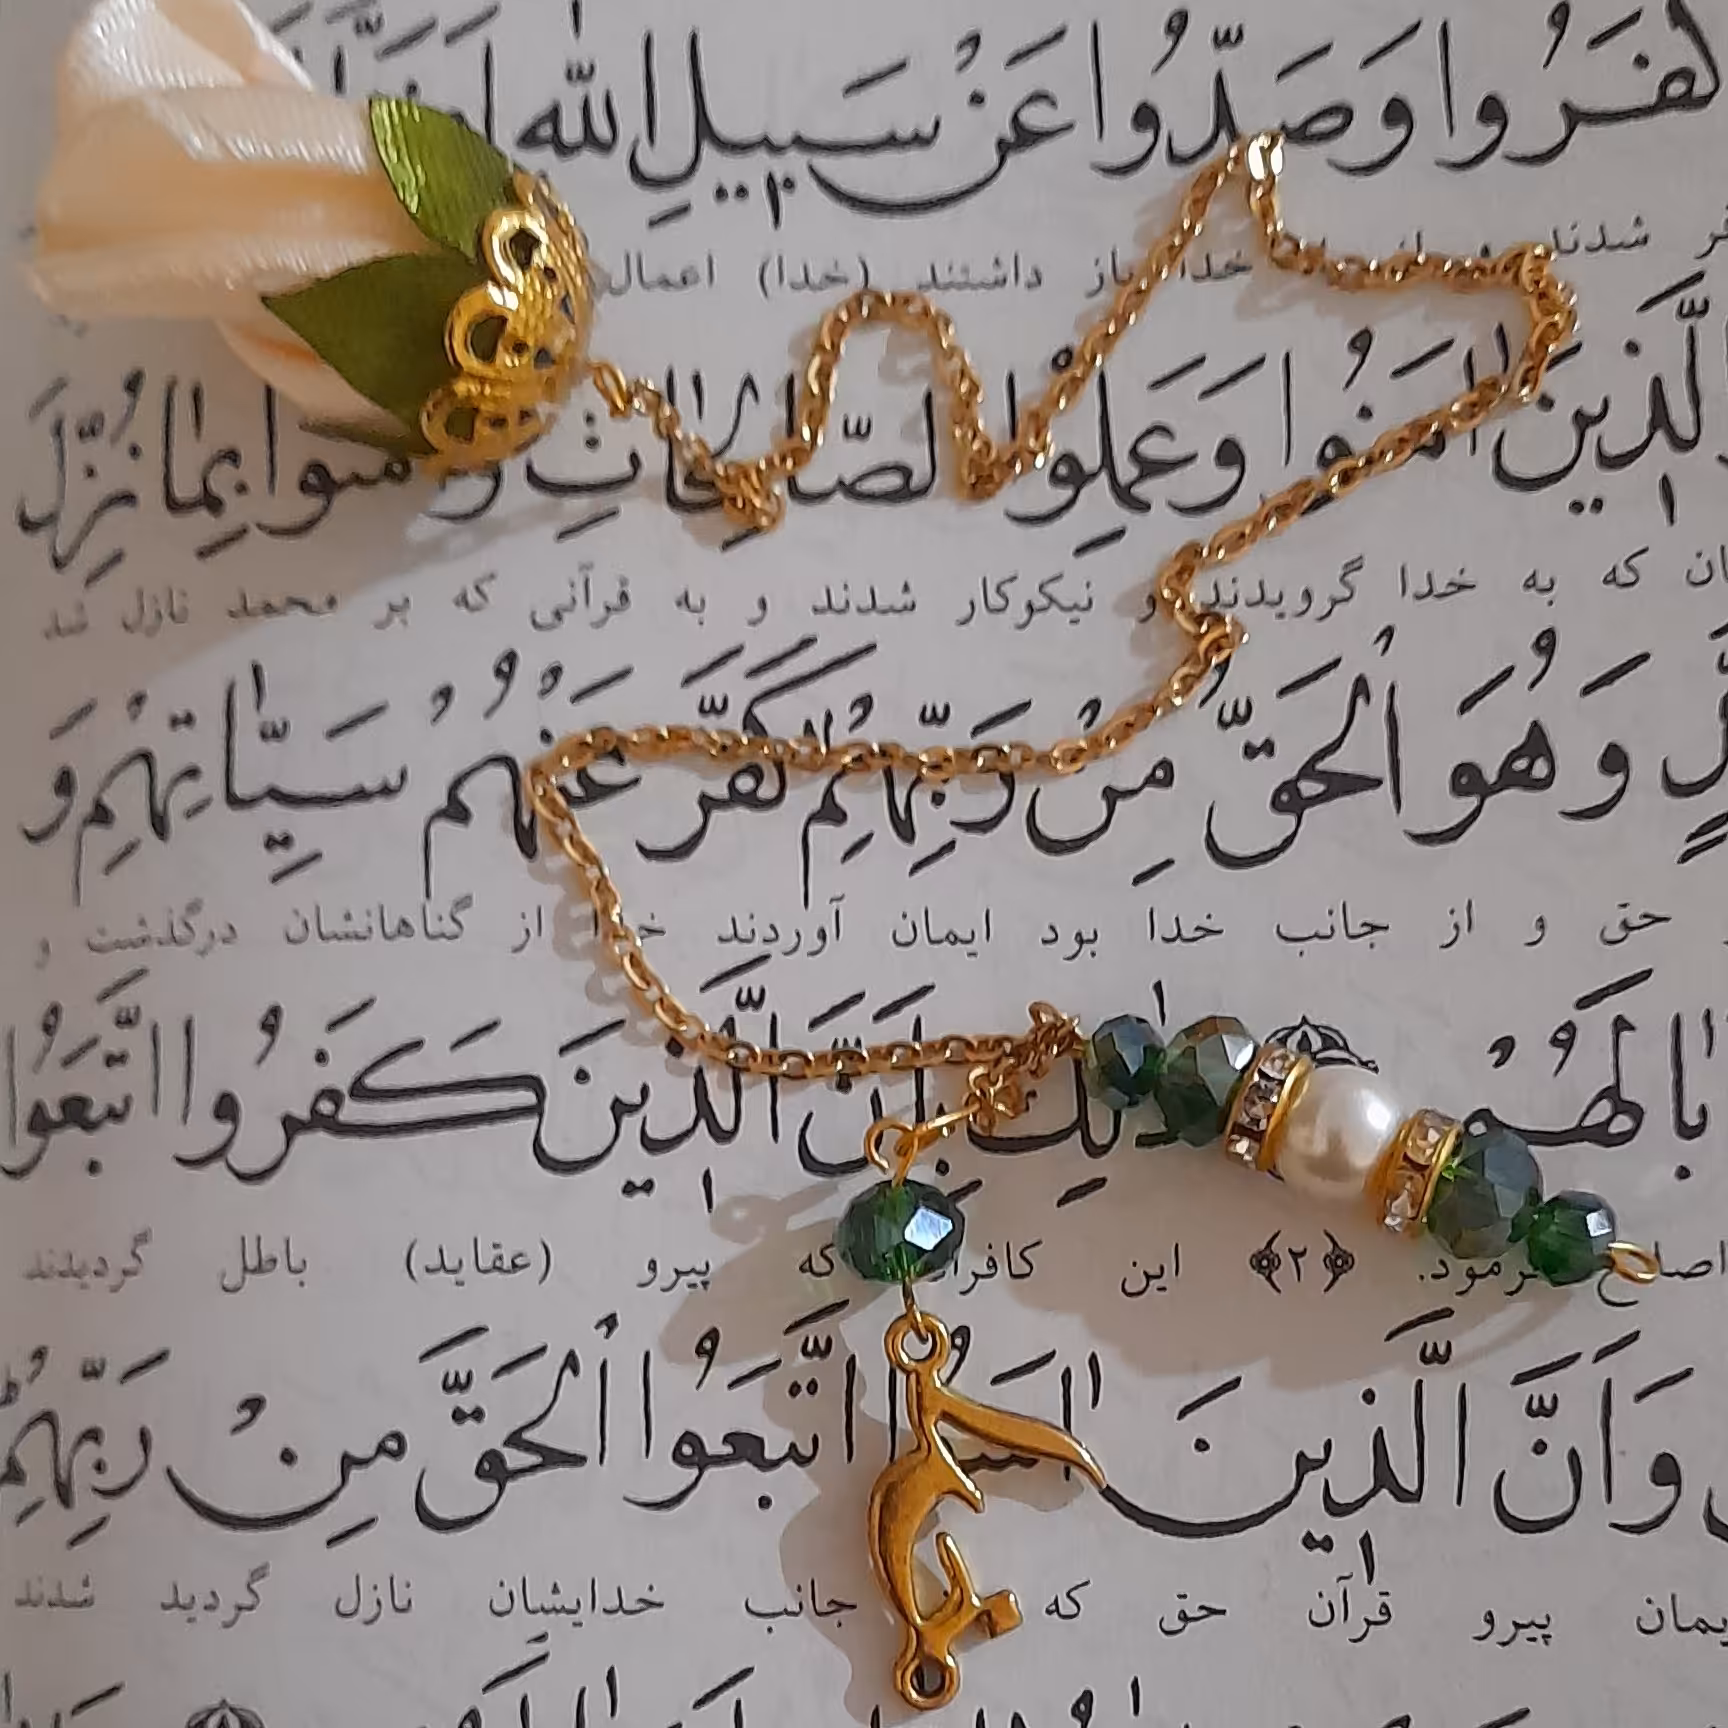 كَفَرُوا وَصَدُّوا عَنْ سَبِيلِ اللّٰهِ
شدند و خدا باز داشتند (خدا) اعمال
الَّذِينَ اٰمَنُوا وَعَمِلُوا الصَّالِحَاتِ وَاٰمَنُوا بِمٰا نُزِّلَ
که به خدا گرویدند و نیکوکار شدند و به قرآنی که بر محمد نازل شد
وَهُوَ الْحَقُّ مِنْ رَبِّهِمْ كَفَّرَ عَنْهُمْ سَيِّـٰٔاتِهِمْ وَ
حق و از جانب خدا بود ایمان آوردند خدا از گناهانشان درگذشت و
بٰالَهُمْ ذٰلِكَ بِاَنَّ الَّذِينَ كَفَرُوا اتَّبَعُوا
اصلاح فرمود. ﴿۲﴾ این کافران که پیرو (عقاید) باطل گردیدند
وَاَنَّ الَّذِينَ اٰمَنُوا اتَّبَعُوا الْحَقَّ مِنْ رَبِّهِمْ
پیرو قرآن حق که جانب خدایشان نازل گردید شدند